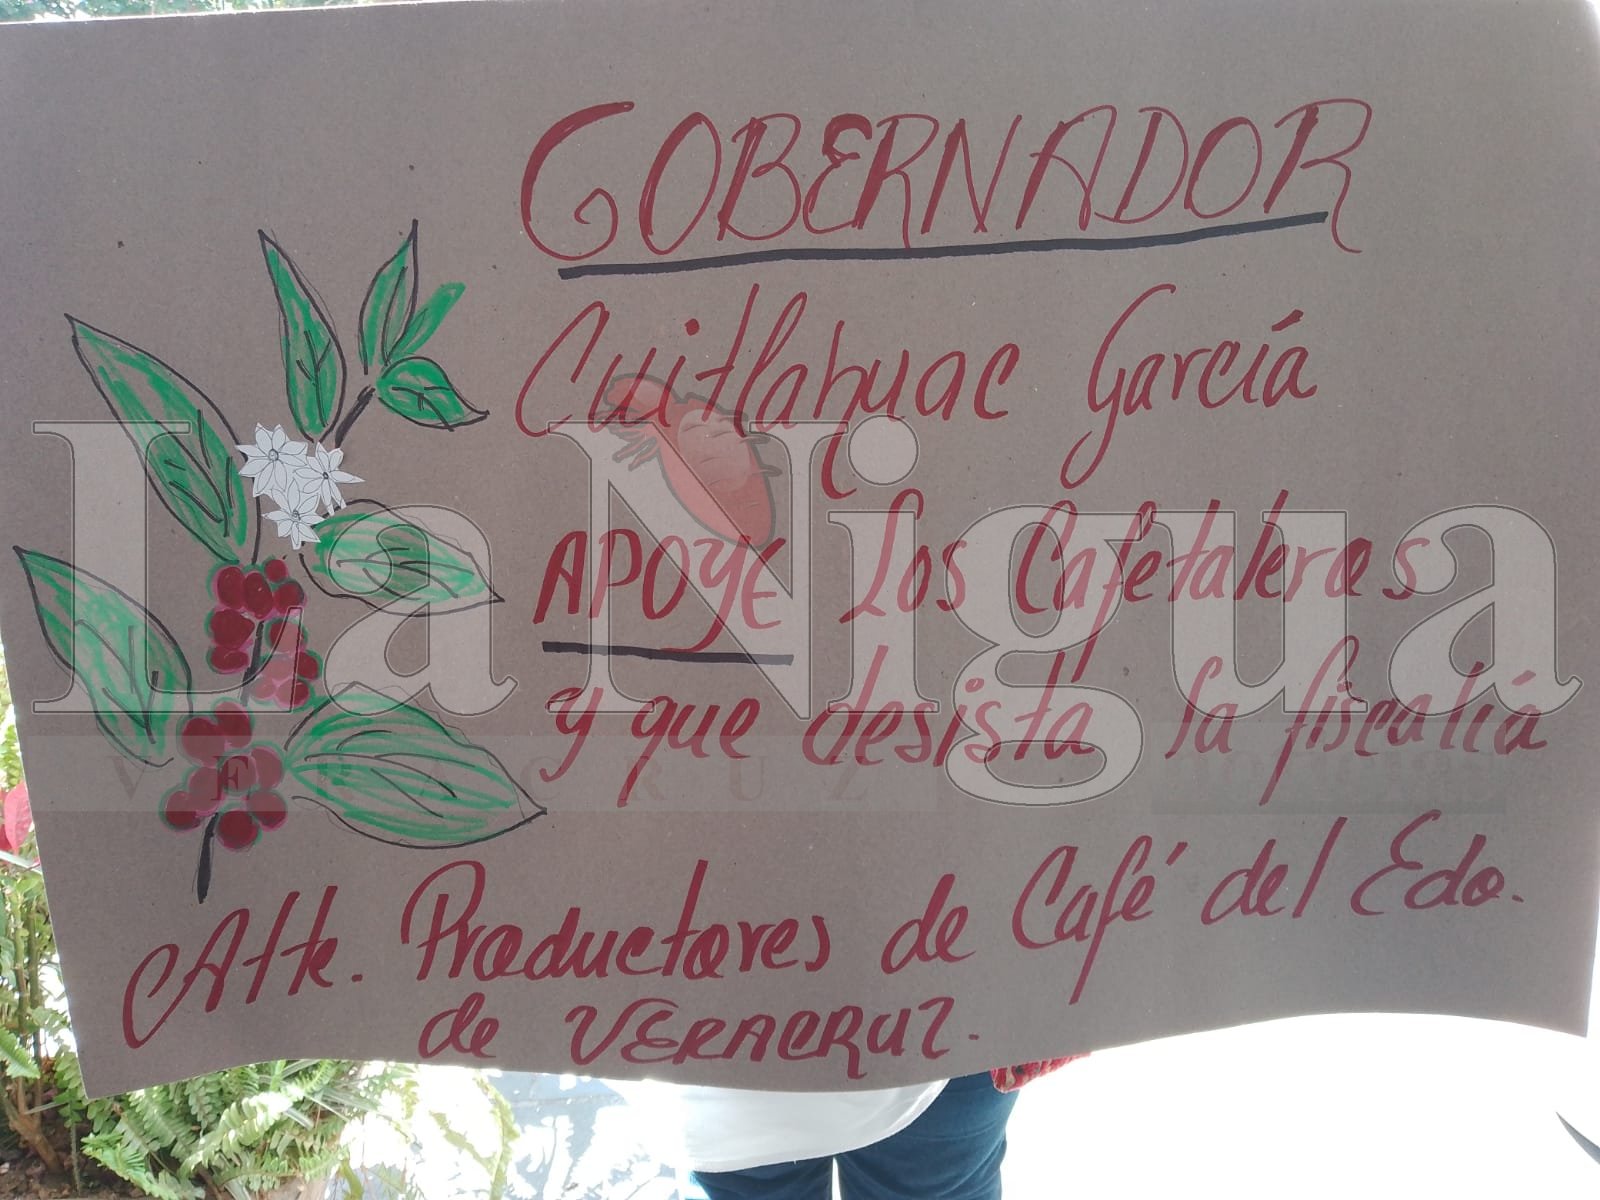 GOBERNADOR
Cuitlahuac García
APOYE Los Cafetaleros
y que desista la fiscalía
Atte. Productores de Café del Edo.
de VERACRUZ.
La Nigua
VERACRUZ